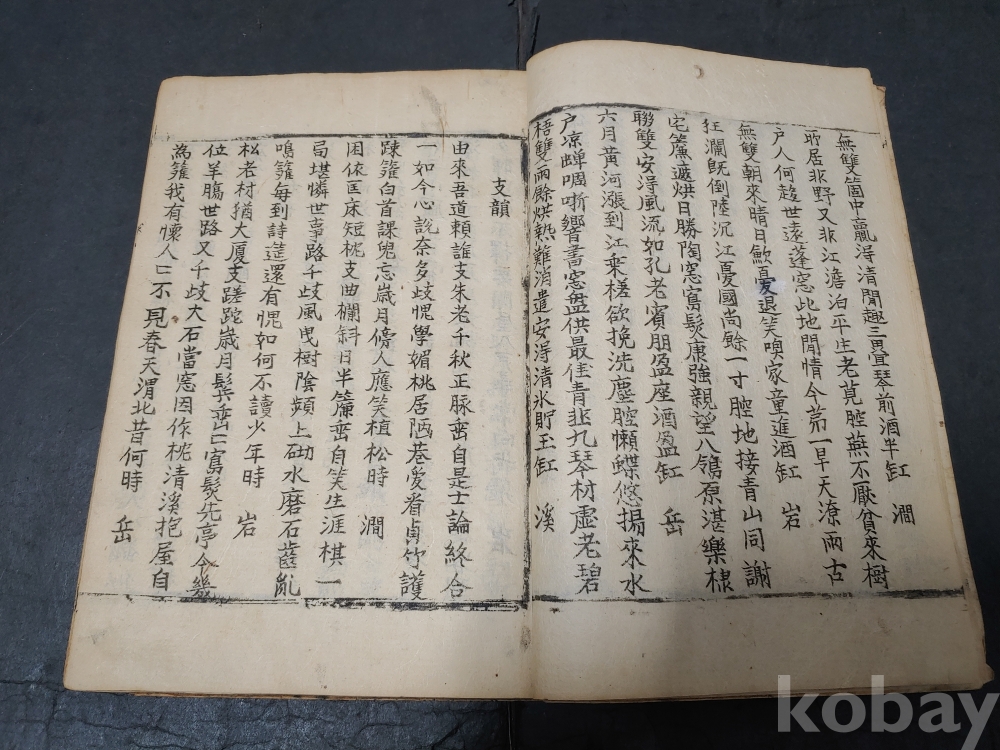 無雙箇中贏得清閒趣三疊琴前酒半缸 澗
所居非野又非江澹泊平生老莧腔蕪不厭貧來樹
戶人何趍世遠蓬窓此地閒情今第一旱天潦雨古
無雙朝來晴日歛憂退笑喚家童進酒缸 岩
狂瀾旣倒陸沉江憂國尚餘一寸腔地接青山同謝
宅簾遮烘日勝陶窓富髮康強親望八鴒原湛樂棣
聯雙安淂風流如孔老賓朋盈座酒盈缸 岳
六月黃河漲到江乘槎欲挽洗塵腔懶蝶悠揚來水
戶凉蟬啁哳響書窓盤供最佳青韭九琴材虛老碧
梧雙雨餘烘熱難消遣安得清氷貯玉缸 溪
支韻
由來吾道賴誰支朱老千秋正脉垂自是士論終合
一如今心說奈多歧愧學媚桃居陋巷愛看貞竹護
踈籬白首課兒忘歲月傍人應笑植松時 澗
困依匡床短枕支曲欄斜日半簾垂自笑生涯棋一
局堪憐世事路千歧風曳樹陰頻上砌水磨石齒亂
鳴籬每到詩筵還有愧如何不讀少年時 岩
松老材猶大厦支蹉跎歲月髮垂二富髮先亭今幾
位羊膓世路又千歧大石當窓因作枕清溪抱屋自
爲籬我有懷人二不見春天渭北昔何時 岳
kobay